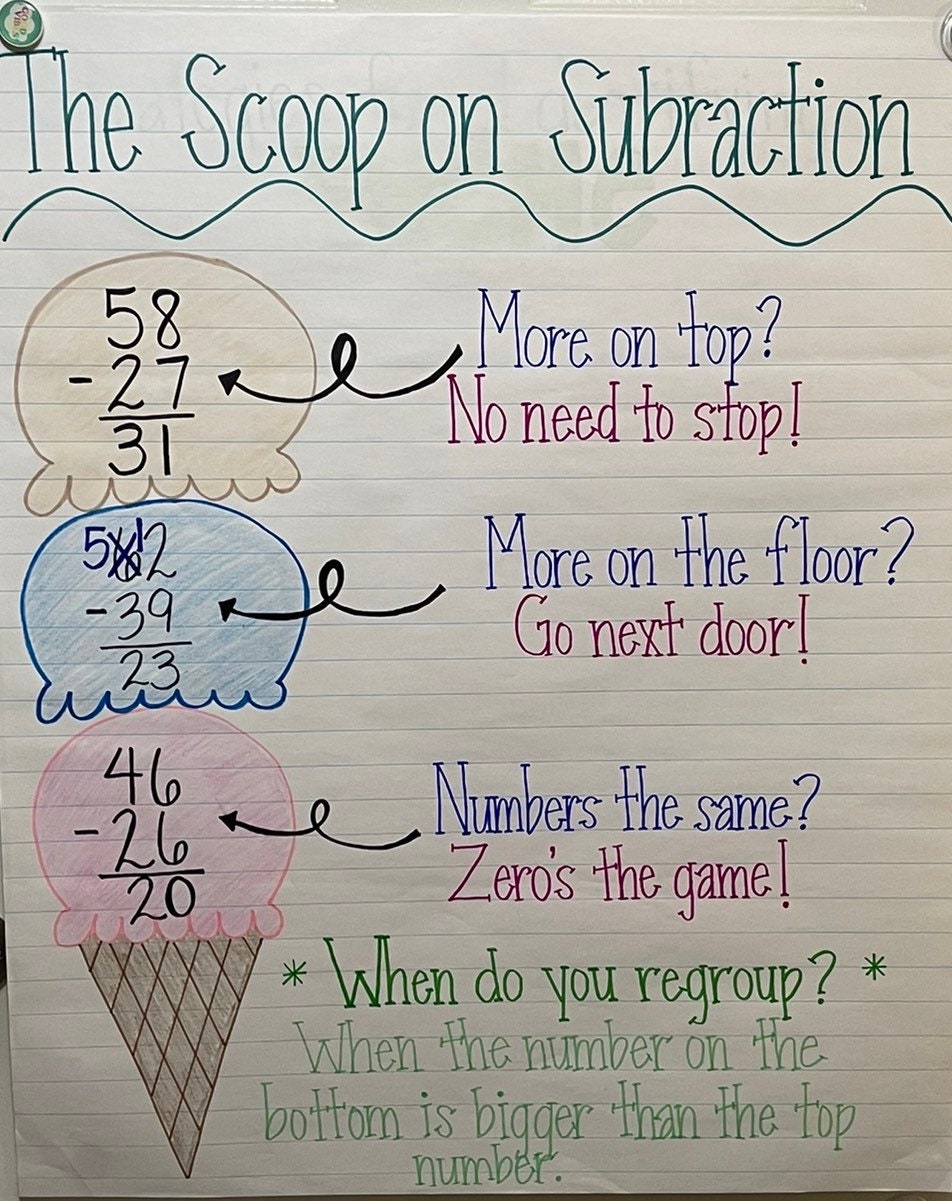 The Scoop on Subraction
58
- 27
31
More on top?
No need to stop!
5 6 12
- 39
23
More on the floor?
Go next door!
46
- 26
20
Numbers the same?
Zero's the game!
* When do you regroup? *
When the number on the
bottom is bigger than the top
number.